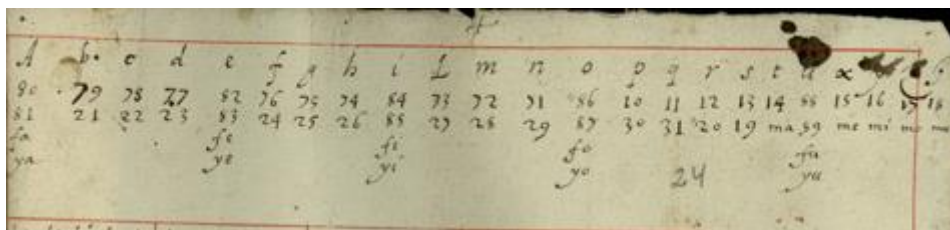 A b. c d e f g h i L m n o p q r s t u x
80 79 78 77 82 76 75 74 84 73 72 71 86 10 11 12 13 14 88 15 16 17 18
81 21 22 23 83 24 25 26 85 27 28 29 87 30 31 20 19 ma 89 me mi mo
fa fe fi fo fu
ya ye yi yo yu
24